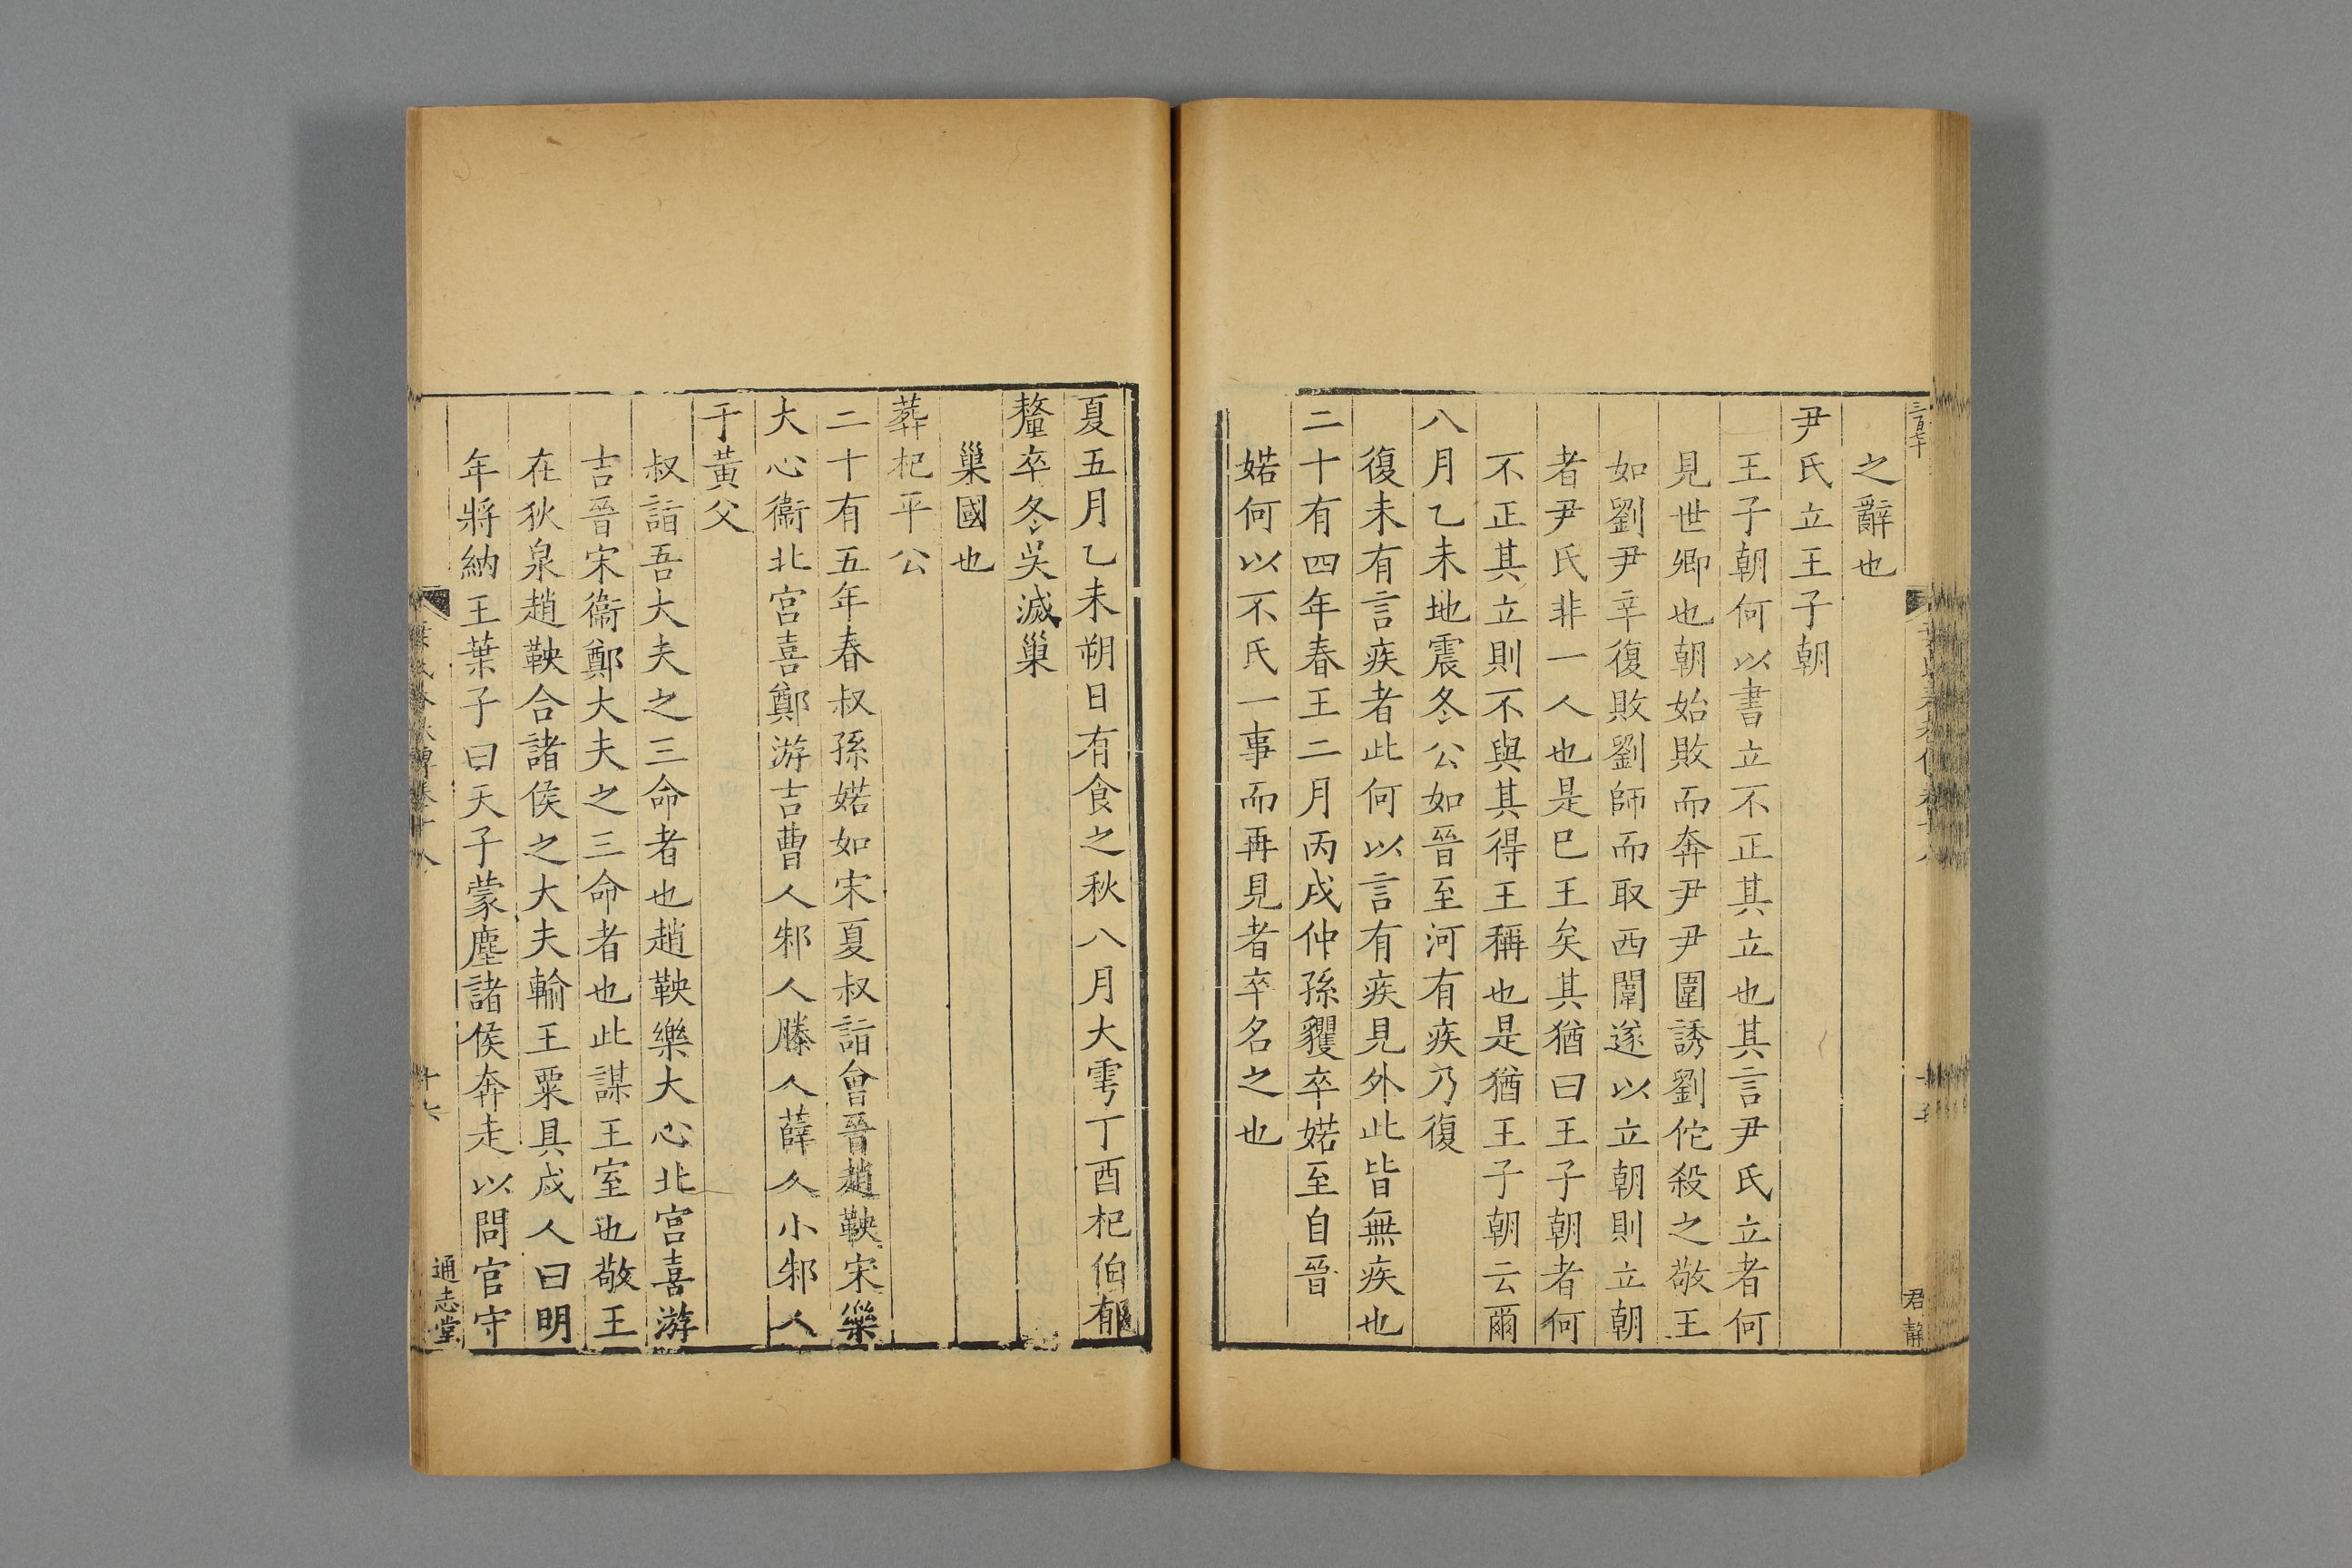 三百七十
君靜
之辭也
尹氏立王子朝
王子朝何以書立不正其立也其言尹氏立者何
見世卿也朝始敗而奔尹尹圉誘劉佗殺之敬王
如劉尹辛復敗劉師而取西闈遂以立朝則立朝
者尹氏非一人也是巳王矣其猶曰王子朝者何
不正其立則不與其得王稱也是猶王子朝云爾
八月乙未地震冬公如晉至河有疾乃復
復未有言疾者此何以言有疾見外此皆無疾也
二十有四年春王二月丙戌仲孫貜卒婼至自晉
婼何以不氏一事而再見者卒名之也
夏五月乙未朔日有食之秋八月大雩丁酉杞伯郁
釐卒冬吳滅巢
巢國也
葬杞平公
二十有五年春叔孫婼如宋夏叔詣會晉趙鞅宋樂
大心衞北宮喜鄭游吉曹人邾人滕人薛人小邾人
于黃父
叔詣吾大夫之三命者也趙鞅樂大心北宮喜游
吉晉宋衞鄭大夫之三命者也此謀王室也敬王
在狄泉趙鞅合諸侯之大夫輸王粟具戍人曰明
年將納王葉子曰天子蒙塵諸侯奔走以問官守
十六
通志堂